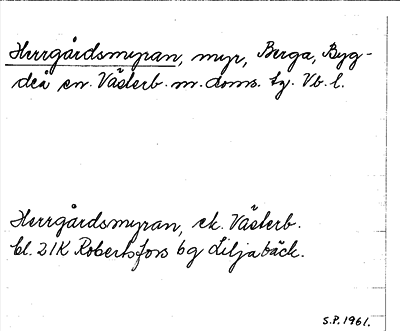 Herrgårdsmyran, myr, Berga, Byg-
deå sn. Västerb. m. doms. tg. Vb. l.
Herrgårdsmyran, ek. Västerb.
bl. 21K Robertsfors 6g Liljabäck.
S.P. 1961.